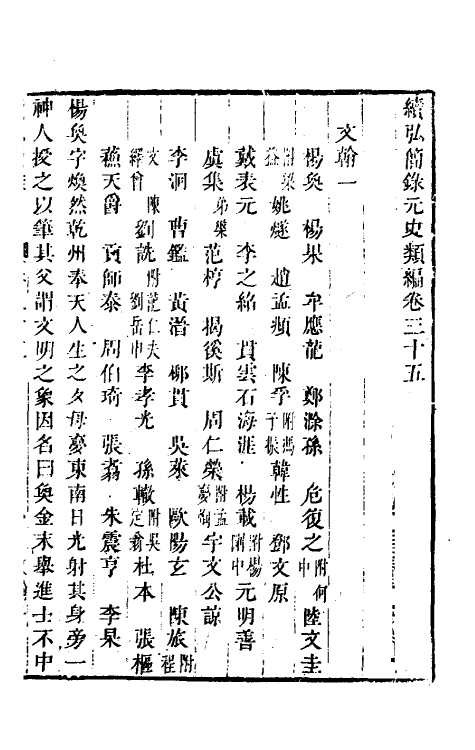 續弘簡錄元史類編卷三十五
文翰一
楊奐 楊果 牟應龍 鄭滁孫 危復之附何中 陸文圭
附梁益 姚燧 趙孟頫 陳孚附馮子振 韓性 鄧文原
戴表元 李之紹 貫雲石海涯 楊載附楊剛中 元明善
虞集弟槃 范梈 揭傒斯 周仁榮附孟夢恂 宇文公諒
李泂 曹鑑 黃溍 柳貫 吳萊 歐陽玄 陳旅附程
文 陳繹曾 劉詵附范仁夫劉岳申 李孝光 孫轍附吳定翁 杜本 張樞
蘇天爵 貢師泰 周伯琦 張翥 朱震亨 李杲
楊奐字煥然乾州奉天人生之夕母夢東南日光射其身旁一
神人授之以筆其父謂文明之象因名曰奐金末舉進士不中